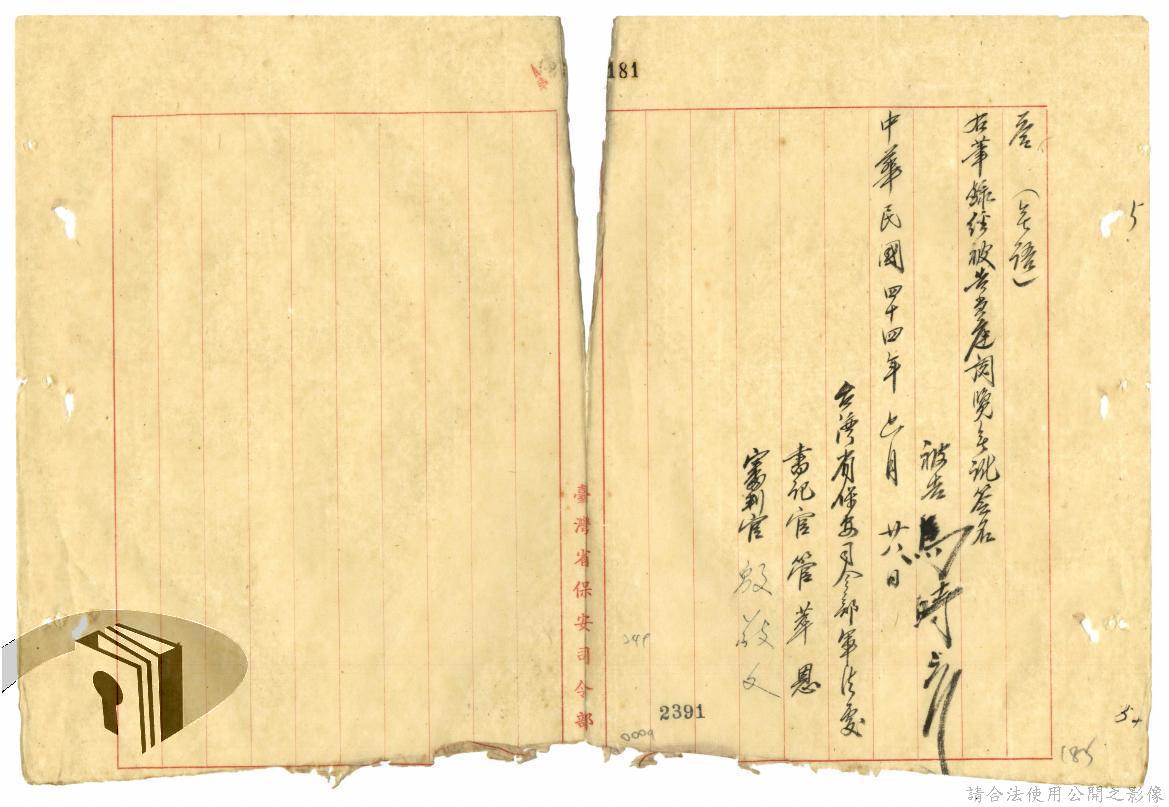 181
答（無語）
右筆錄經被告當庭閱覽無訛簽名
被告 馬時彥
中華民國四十四年七月廿八日
台灣省保安司令部軍法處
書記官 管萃恩
審判官 殷敬文
臺灣省保安司令部
2391
249
0009
5
54
185
請合法使用公開之影像